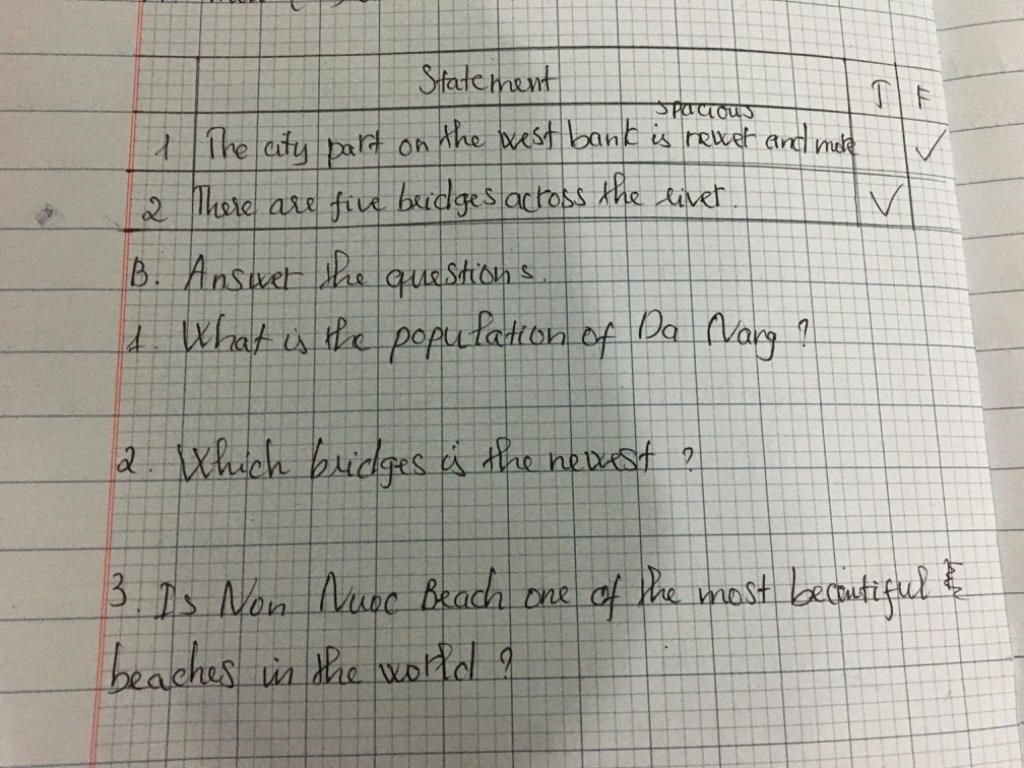 Statement T F
spacious
1 The city part on the west bank is newer and more ✓
2 There are five bridges across the river. ✓
B. Answer the questions.
1. What is the population of Da Nang ?
2. Which bridges is the newest ?
3. Is Non Nuoc Beach one of the most beautiful
beaches in the world ?